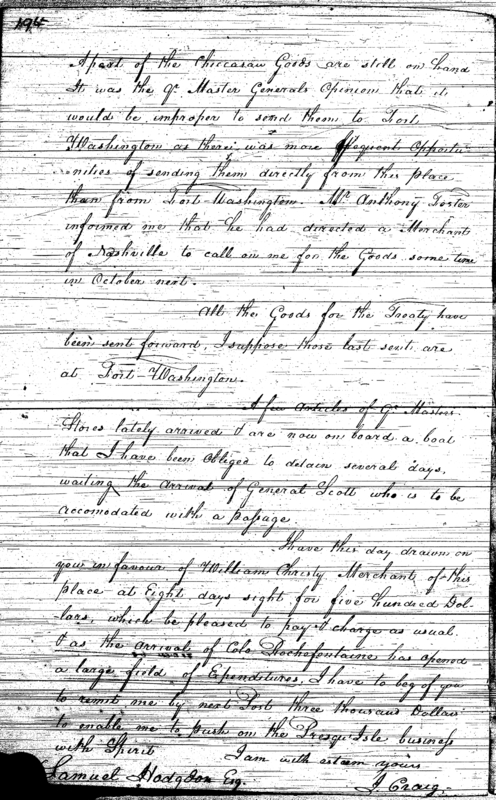 194
A part of the Chiccasaw Goods are still on hand
It was the Qr Master Generals Opinion that it
would be improper to send them to Fort
Washington as there was more frequent Opportu-
nities of sending them directly from this place
than from Fort Washington. Mr. Anthony Foster
informed me that he had directed a Merchant
of Nashville to call on me for the Goods some time
in October next.
All the Goods for the Treaty have
been sent forward, I suppose those last sent are
at Fort Washington.
A few articles of Qr Masters
Stores lately arrived & are now on board a boat
that I have been obliged to detain several days,
waiting the arrival of General Scott who is to be
accomodated with a passage
I have this day drawn on
you in favour of William Christy Merchant of this
place at Eight days sight for five hundred Dol-
lars, which be pleased to pay & charge as usual.
& as the arrival of Colo. Rochefontaine has opened
a large field of Expenditures, I have to beg of you
to remit me by next Post three thousand Dollars
to enable me to push on the Presqu'Isle business
with Spirit I am with esteem yours
Samuel Hodgdon Esq. I Craig